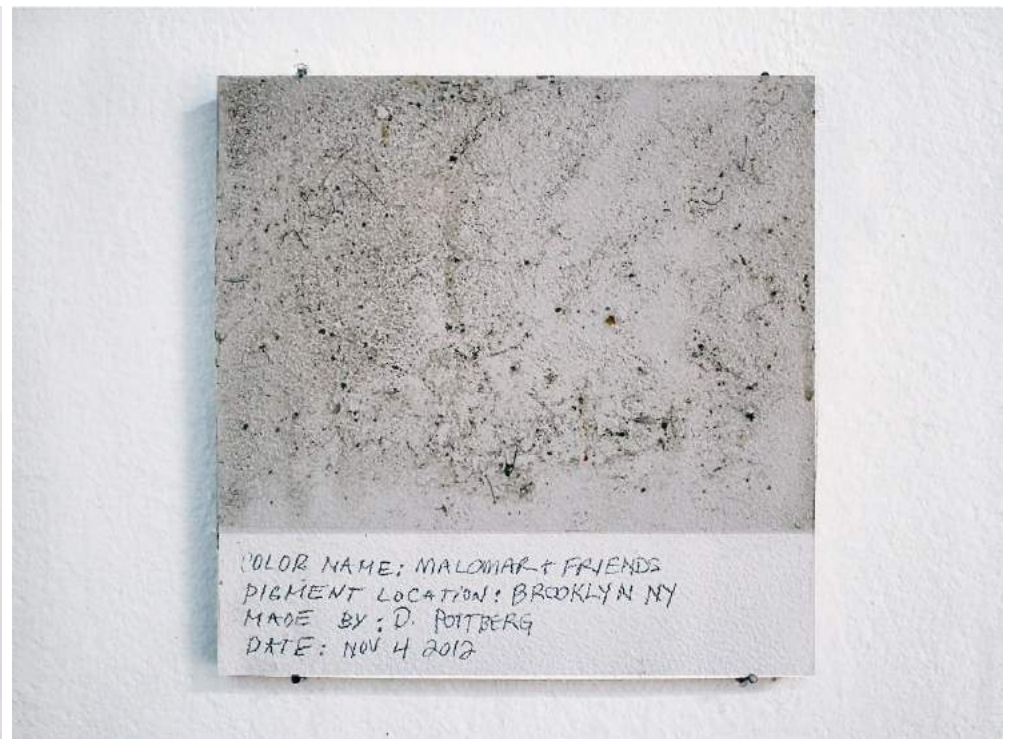 COLOR NAME: MALOMAR + FRIENDS
PIGMENT LOCATION: BROOKLYN NY
MADE BY: D. POTTBERG
DATE: NOV 4 2012